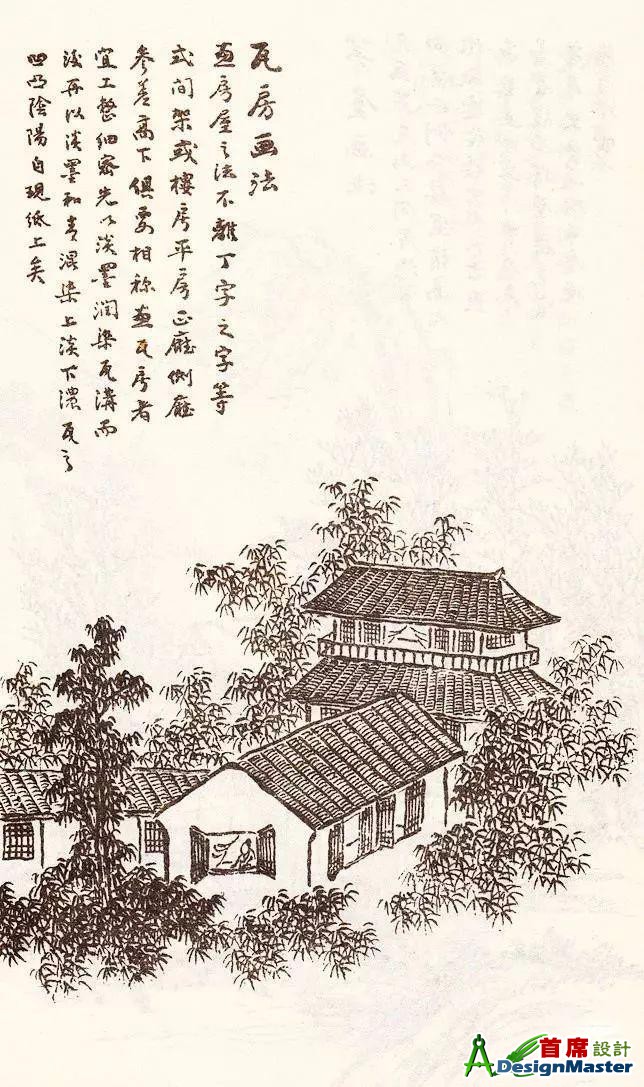 瓦房画法
画房屋之法不離丁字之字等
式间架或樓房平房正廳側廳
參差高下俱要相称画瓦房者
宜工整细密先以淡墨润染瓦溝而
後再以淡墨和青混染上淡下濃瓦之
凹凸陰陽自現纸上矣
首席設計
ADesignMaster